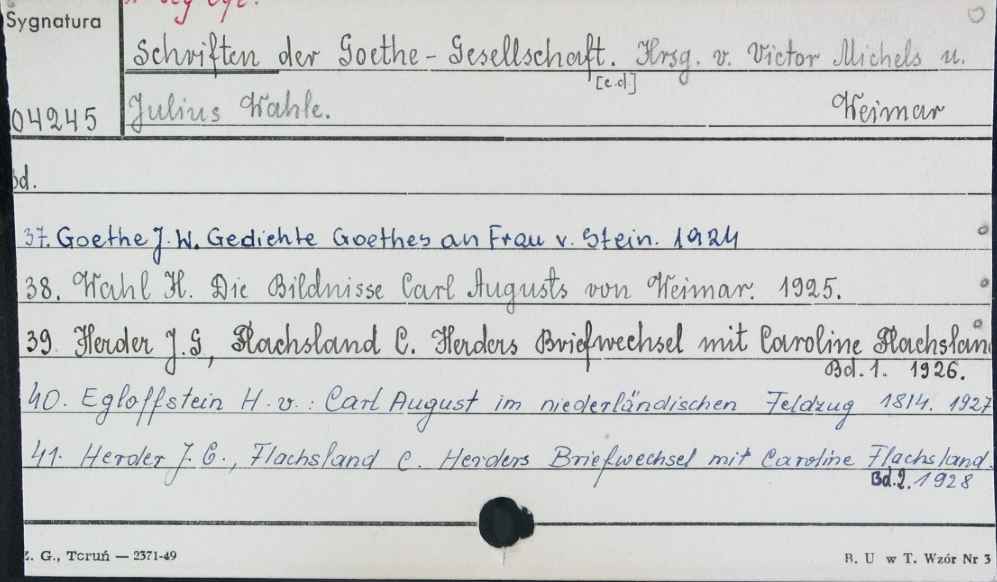 Sygnatura
Schriften der Goethe-Gesellschaft. Hrsg. v. Victor Michels u.
[c.d]
04245 Julius Wahle. Weimar
Bd.
37. Goethe J. W. Gedichte Goethes an Frau v. Stein. 1924
38. Wahl H. Die Bildnisse Carl Augusts von Weimar. 1925.
39. Herder J. G, Flachsland C. Herders Briefwechsel mit Caroline Flachslan
Bd. 1. 1926.
40. Egloffstein H. v.: Carl August im niederländischen Feldzug 1814. 1927
41. Herder J. G., Flachsland C. Herders Briefwechsel mit Caroline Flachsland.
Bd. 2. 1928
Z. G., Toruń — 2371-49 B. U w T. Wzór Nr 3